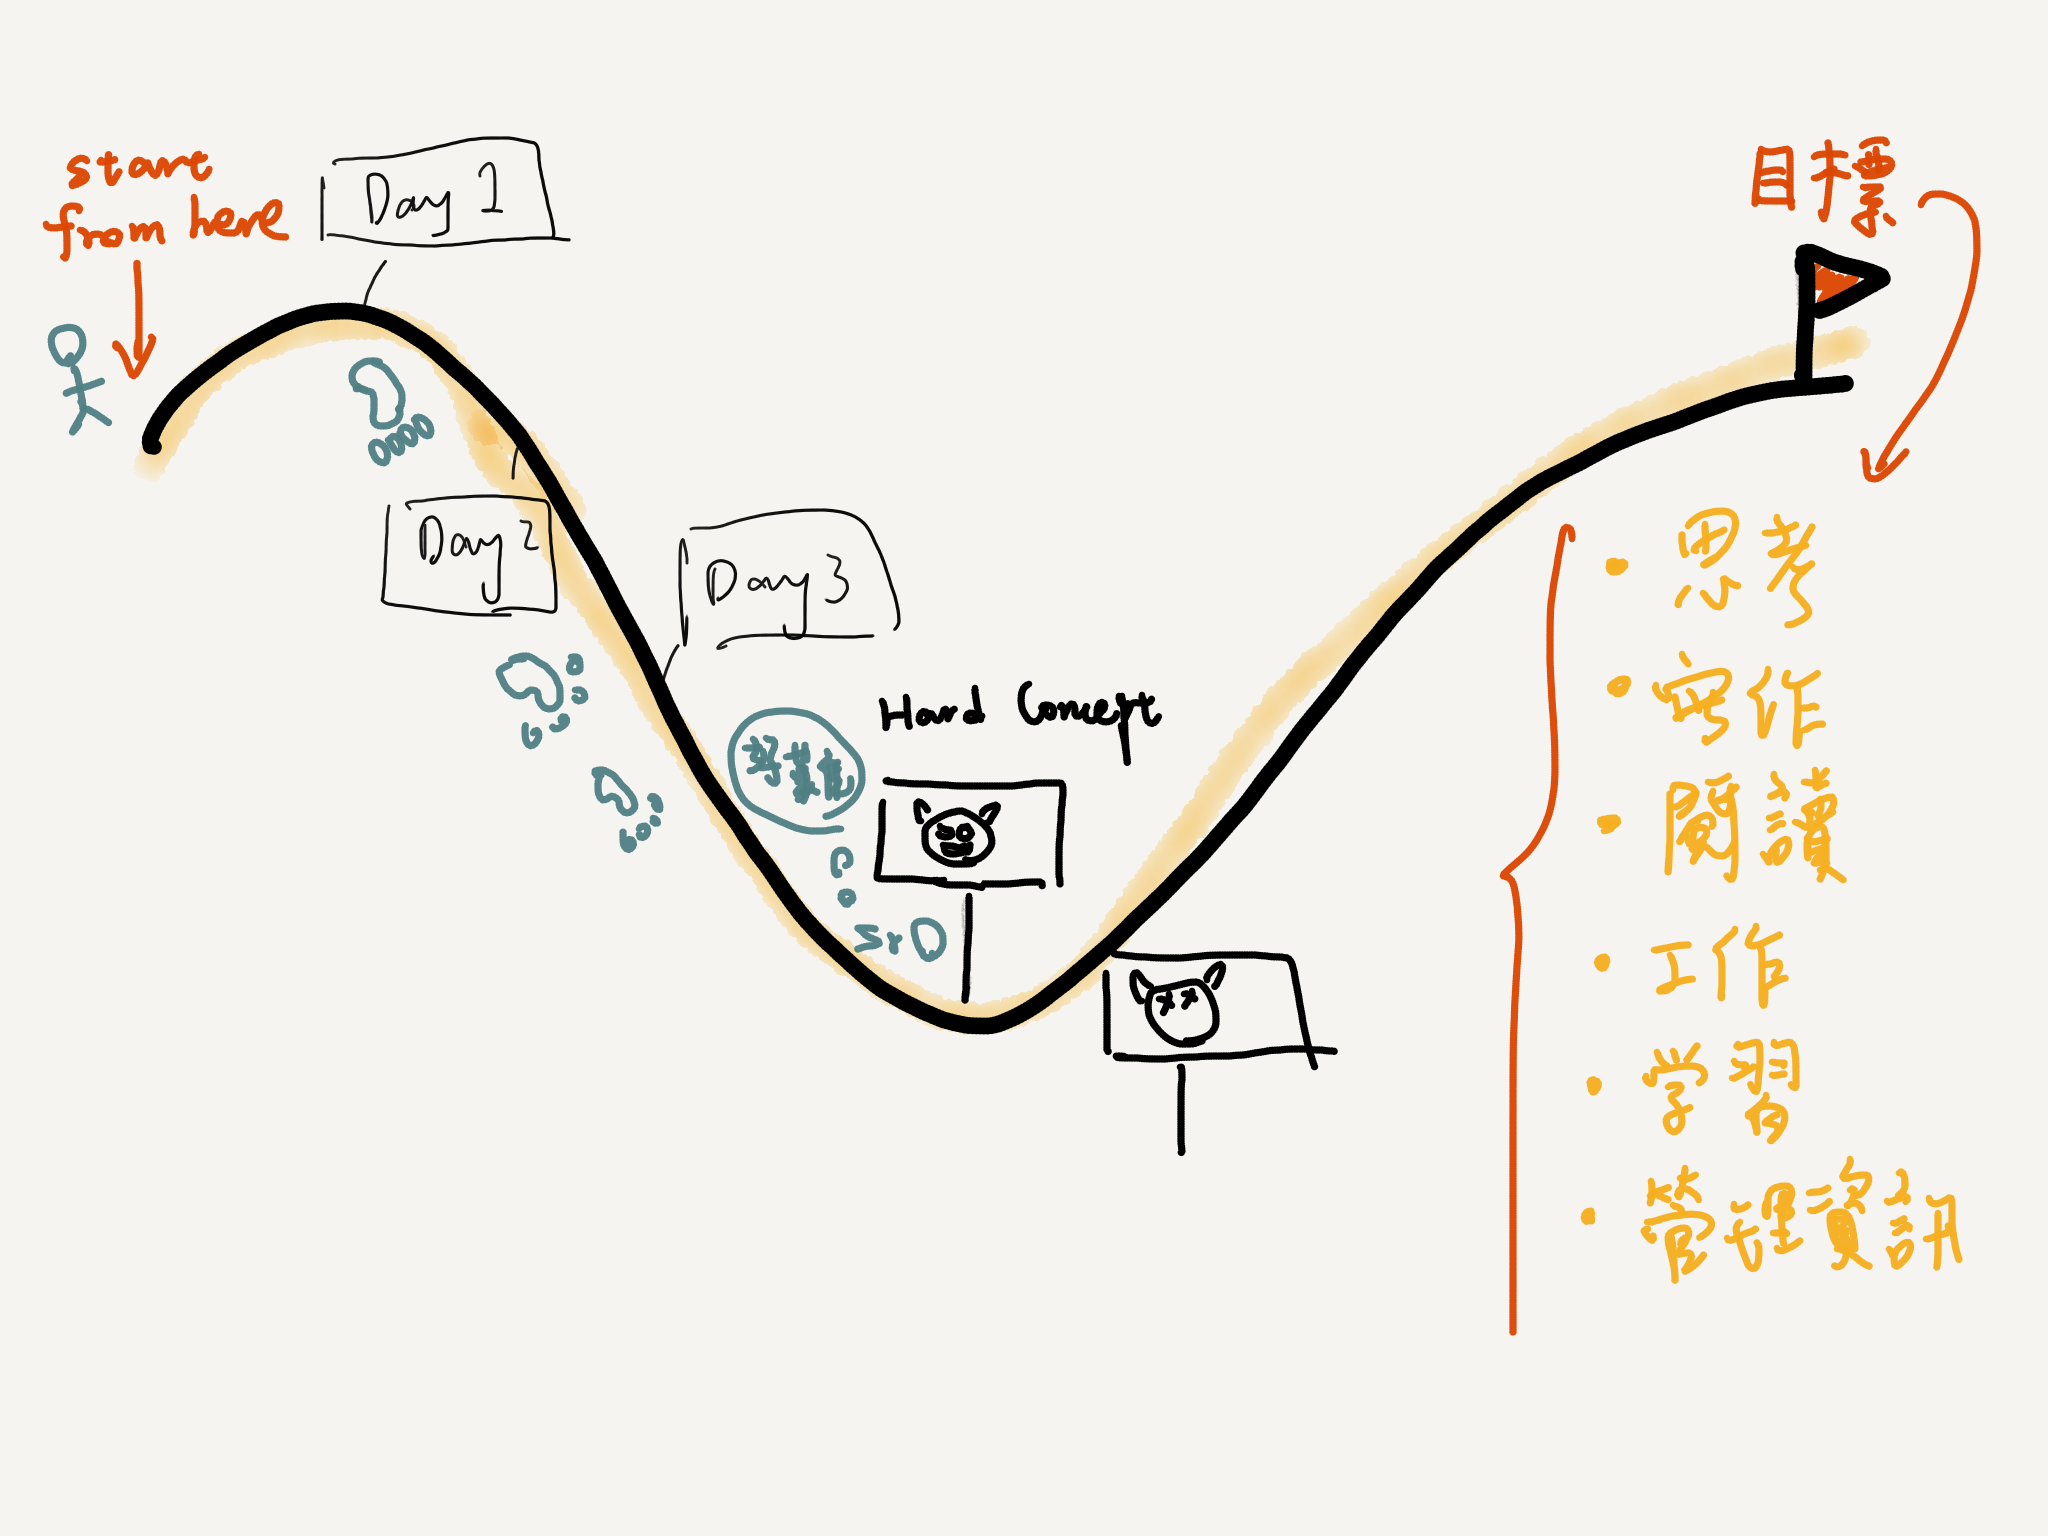 start
from here
Day 1
目標
Day 2
Day 3
Hard Concept
思考
寫作
閱讀
工作
学習
管理資訊